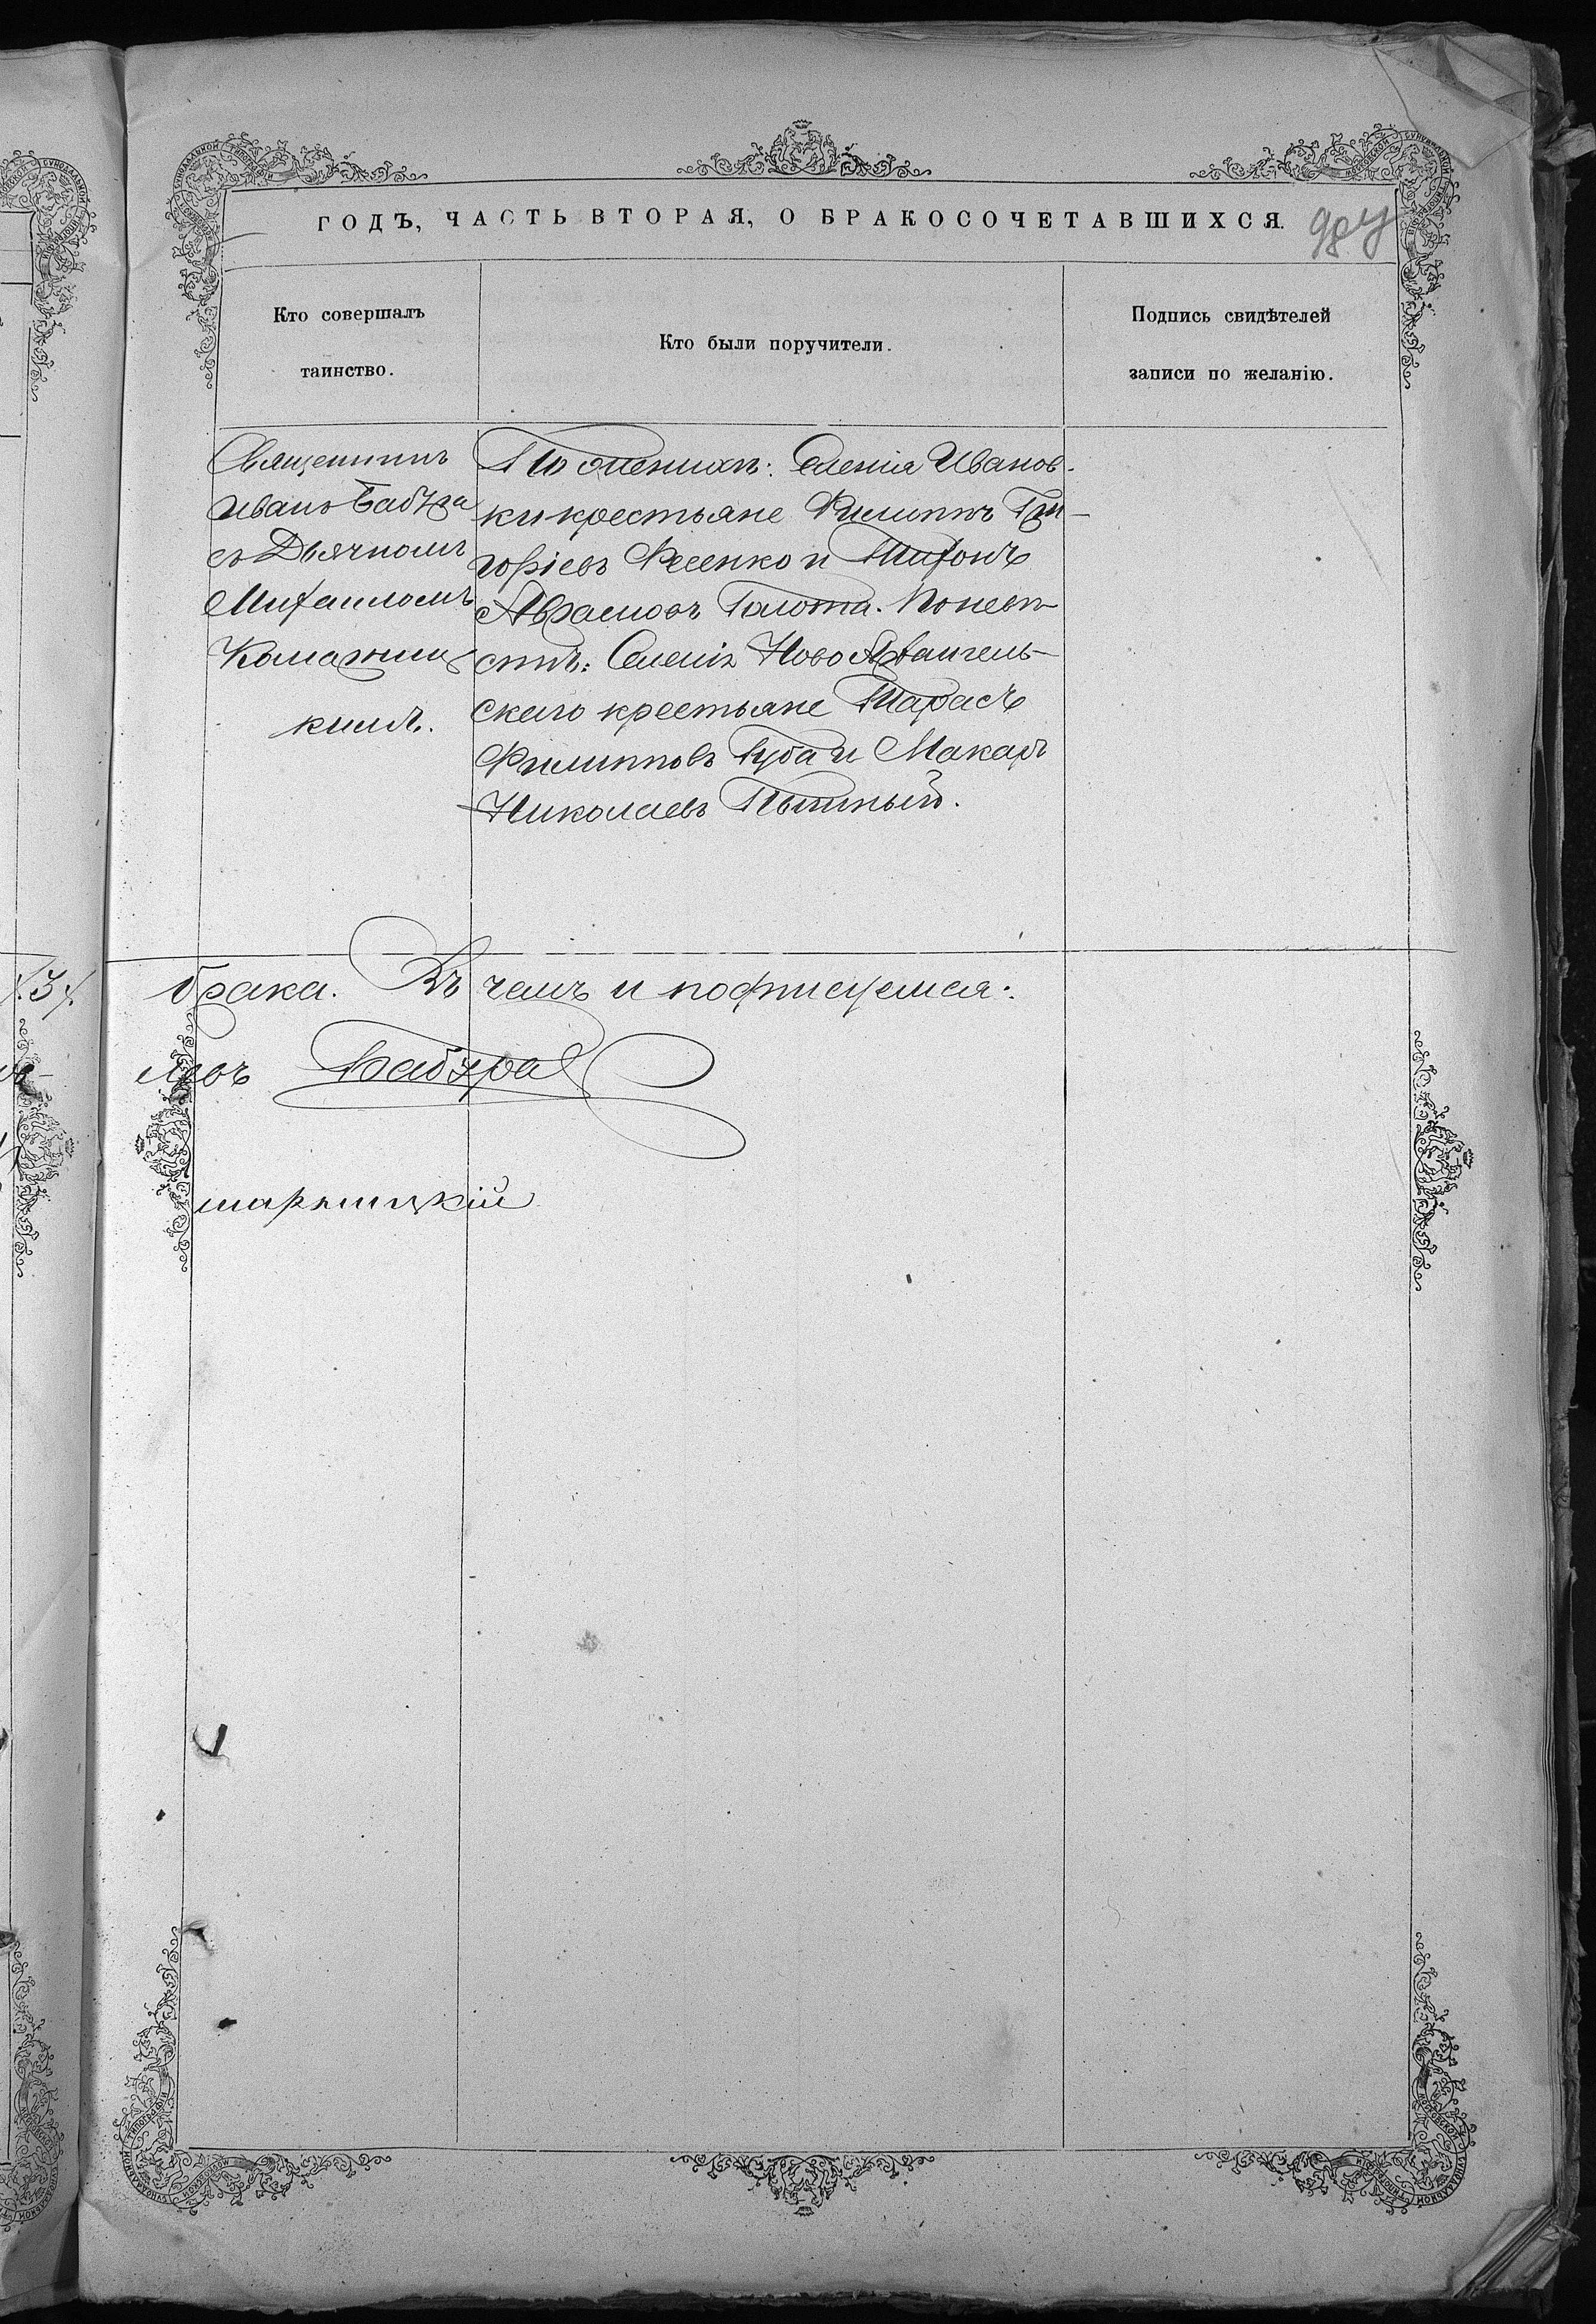 ГОДЪ, ЧАСТЬ ВТОРАЯ, О БРАКОСОЧЕТАВШИХСЯ.
Кто совершалъ
таинство.
Кто были поручители.
Подпись свидѣтелей
записи по желанію.
Священникъ
Иванъ Бабура
съ Дьячкомъ
Михаиломъ
кимъ.
По женихѣ: Селенія Иванов-
ки крестьяне Филиппъ Гри-
горіевъ Фесенко и Тихонъ
Аврамовъ Голота. По невѣ-
стѣ: Селенія Ново Архангель-
скаго крестьяне Тарасъ
Филипповъ Губа и Макаръ
Николаевъ Пышный.
брака. Въ чемъ и подписуемся:
Бабура